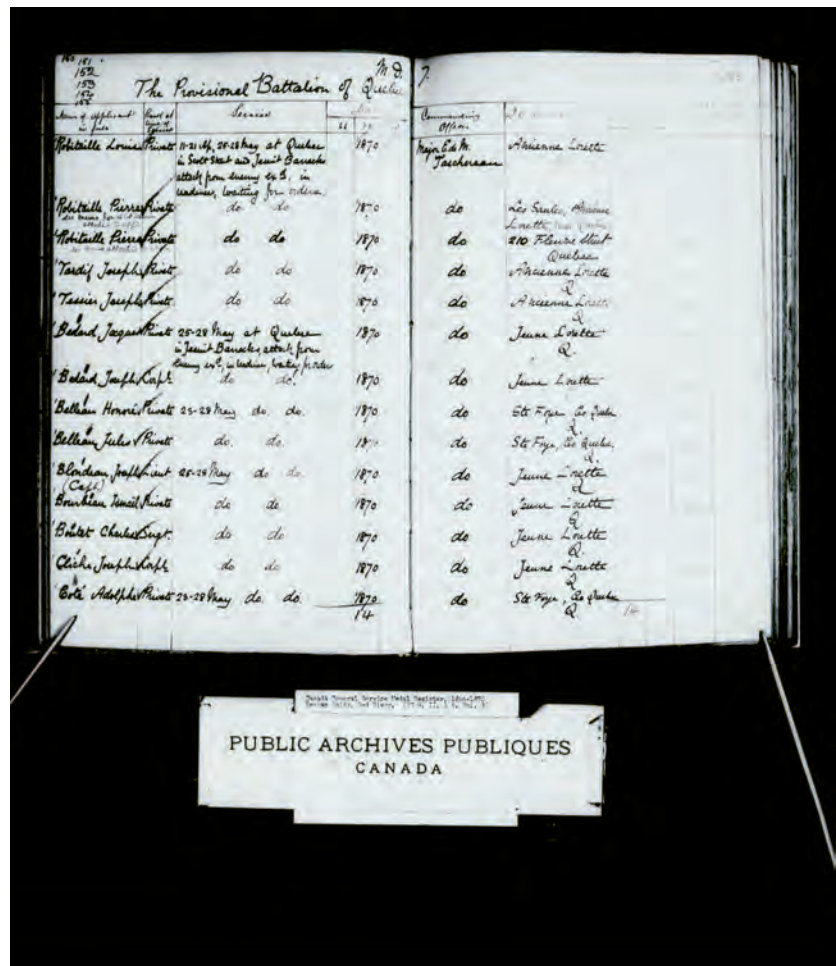 150 151
152
153
154
155
The Provisional Battalion of Quebec
M.D. 7.
Name of applicant in full
Rank at time of
Service
Commanding Officer
Robitaille Louis Private 11-21 Ap, 25-28 May at Quebec 1870 Major E de M. Ancienne Lorette
in Scott Street and Jesuit Barracks Taschereau
attack from enemy exd, in
readiness, waiting for orders
Robitaille Pierre Private do do 1870 do Les Saules, Ancienne
Lorette, near Quebec
Robitaille Pierre Private do do 1870 do 210 Fleurie Street
Quebec
Tardif Joseph Private do do 1870 do Ancienne Lorette
Q
Tessier Joseph Private do do 1870 do Ancienne Lorette
Q
Bedard Jacques Private 25-28 May at Quebec 1870 do Jeune Lorette
in Jesuit Barracks, attack from Q.
enemy exd, in readiness, waiting for orders
Bedard Joseph Corpl do do. 1870 do Jeune Lorette
Belleau Honoré Private 25-28 May do. do. 1870 do Ste Foye Co Quebec
Q.
Belleau Jules Private do. do. 1870 do Ste Foye, Co Quebec.
Q.
Blondeau Joseph Lieut 25-28 May do do. 1870 do Jeune Lorette
(Capt) Q
Bourbeau Ismaïl Private do do 1870 do Jeune Lorette
Q
Boutet Charles Sergt. do do 1870 do Jeune Lorette
Q.
Cliche Joseph Corpl do do 1870 do Jeune Lorette
Q
Coté Adolphe Private 25-28 May do. do. 1870 do Ste Foye, Co Quebec
14 Q 14
Canada General Service Medal Register, 1866-1870
PUBLIC ARCHIVES PUBLIQUES
CANADA